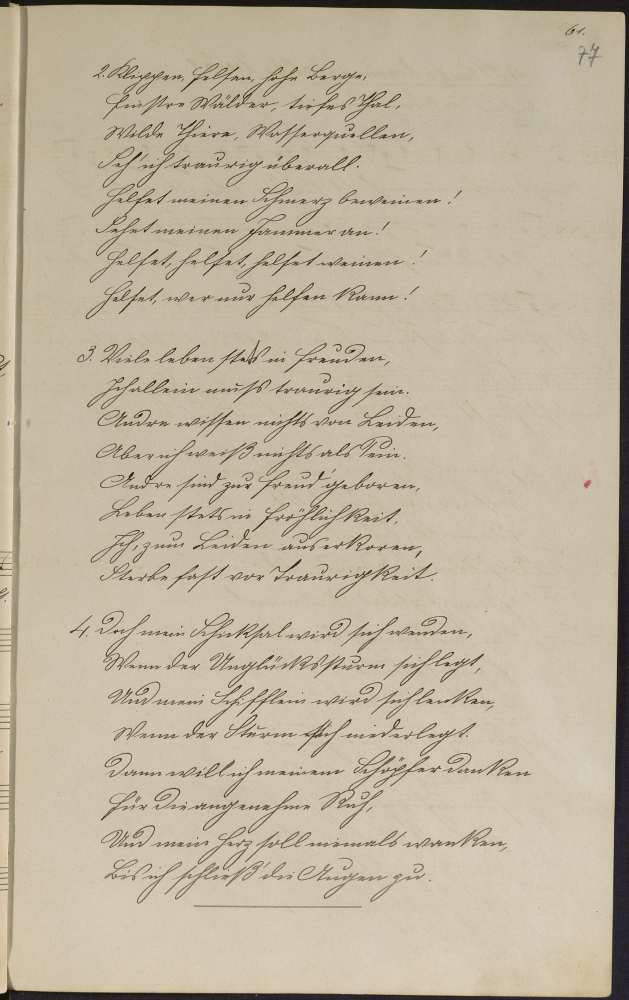 61.
77
2. Klippen, Felsen, hohe Berge,
Finstre Wälder, tiefes Thal,
Wilde Thiere, Wasserquellen,
Seh' ich traurig überall.
Helfet meinen Schmerz beweinen!
Sehet meinen Jammer an!
Helfet, helfet, helfet weinen!
Helfet, wer nur helfen kann!
3. Viele leben stets in Freuden,
Ich allein muss traurig sein.
Andre wissen nichts von Leiden,
Aber ich weiß nichts als Pein.
Andre sind zur Freud' geboren,
Leben stets in Fröhlichkeit,
Ich, zum Leiden auserkoren,
Sterbe fast vor Traurigkeit.
4. Doch mein Schicksal wird sich wenden,
Wenn der Unglückssturm sich legt,
Und mein Schifflein wird sich lenken,
Wenn der Sturm sich niederlegt.
Dann will ich meinem Schöpfer danken
Für die angenehme Ruh',
Und mein Herz soll niemals wanken,
Bis ich schließ' die Augen zu.